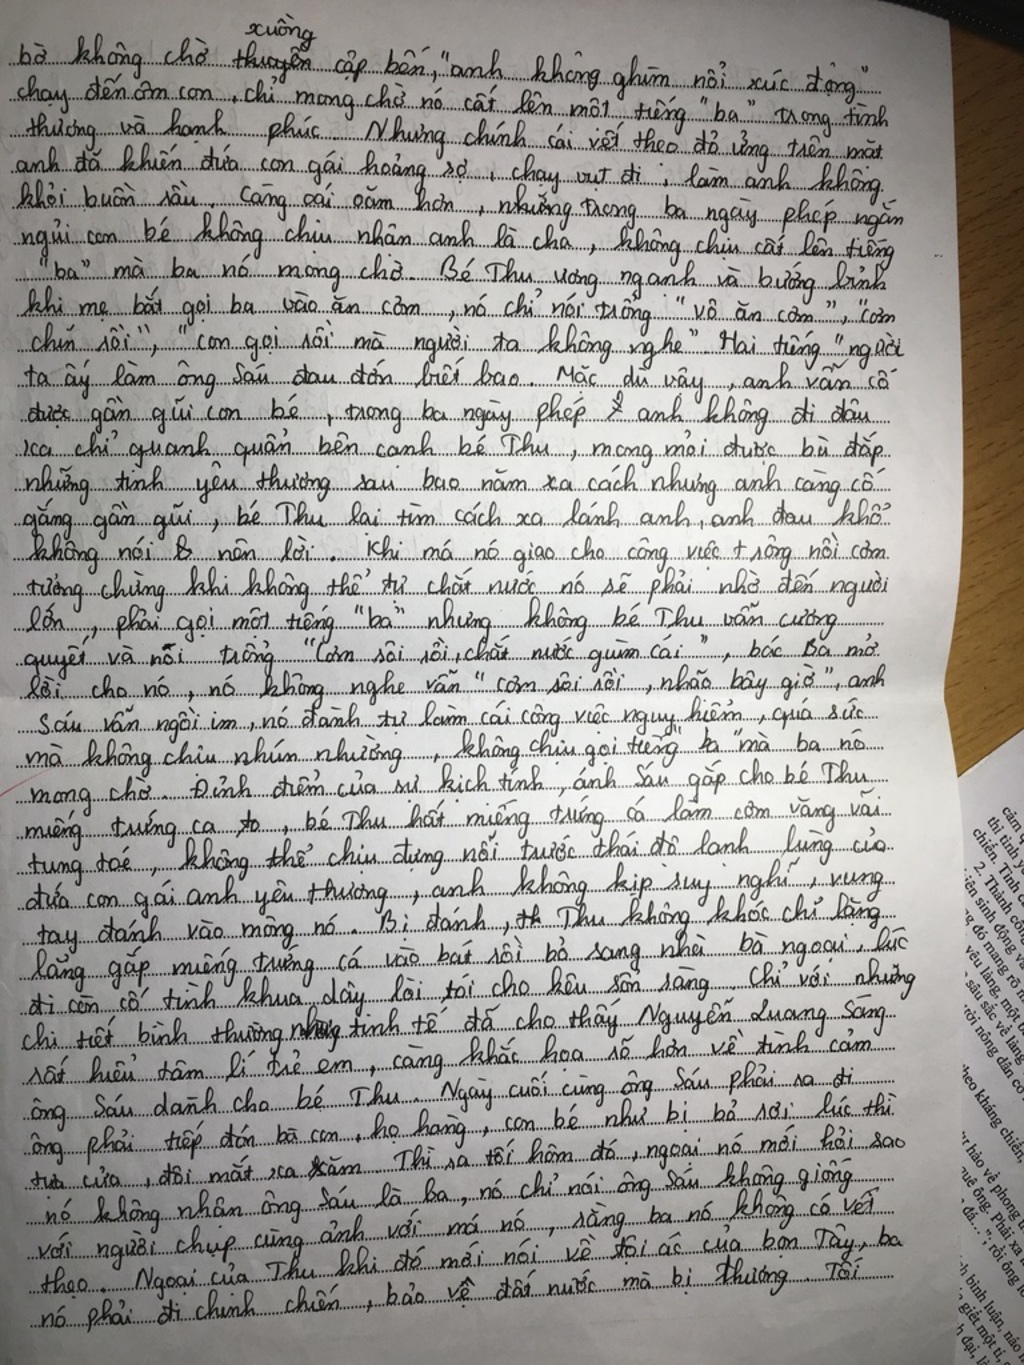 xuồng
bờ không chờ thuyền cập bến, "anh không ghìm nổi xúc động"
chạy đến ôm con, chỉ mong chờ nó cất lên một tiếng "ba" trong tình
thương và hạnh phúc. Nhưng chính cái vết thẹo đỏ ửng trên mặt
anh đã khiến đứa con gái hoảng sợ, chạy vụt đi, làm anh không
khỏi buồn sầu. Càng oái oăm hơn, những trong ba ngày phép ngắn
ngủi con bé không chịu nhân anh là cha, không chịu cất lên tiếng
"ba" mà ba nó mong chờ. Bé Thu ương nganh và bướng bỉnh
khi mẹ bắt gọi ba vào ăn cơm, nó chỉ nói trổng "vô ăn cơm", "cơm
chín rồi", "con gọi rồi mà người ta không nghe". Hai tiếng "người
ta ấy làm ông Sáu đau đớn biết bao. Mặc dù vậy, anh vẫn cố
được gần gũi con bé, trong ba ngày phép anh không đi đâu
xa chỉ quanh quẩn bên cạnh bé Thu, mong mỏi được bù đắp
những tình yêu thương sau bao năm xa cách nhưng anh càng cố
gắng gần gũi, bé Thu lại tìm cách xa lánh anh, anh đau khổ
không nói nên lời. Khi má nó giao cho công việc trông nồi cơm
tưởng chừng khi không thể tự chắt nước nó sẽ phải nhờ đến người
lớn, phải gọi một tiếng "ba" nhưng không bé Thu vẫn cương
quyết và nói trổng "Cơm sôi rồi, chắt nước giùm cái", bác Ba mở
lời cho nó, nó không nghe vẫn "cơm sôi rồi, nhão bây giờ", anh
Sáu vẫn ngồi im, nó đành tự làm cái công việc nguy hiểm, quá sức
mà không chịu nhún nhường, không chịu gọi tiếng "ba" mà ba nó
mong chờ. Đỉnh điểm của sự kịch tính, ánh Sáu gắp cho bé Thu
miếng trứng cá to, bé Thu hất miếng trứng cá làm cơm văng vãi
tung toé, không thể chịu đựng nỗi trước thái độ lạnh lùng của
đứa con gái anh yêu thương, anh không kịp suy nghĩ, vung
tay đánh vào mông nó. Bị đánh, th Thu không khóc chỉ lẳng
lặng gắp miếng trứng cá vào bát rồi bỏ sang nhà bà ngoại, lúc
đi còn cố tình khua dây lòi tói cho kêu rổn rảng. Chỉ với những
chi tiết bình thường nhưng tinh tế đã cho thấy Nguyễn Quang Sáng
rất hiểu tâm lí trẻ em, càng khắc họa rõ hơn về tình cảm
ông Sáu dành cho bé Thu. Ngày cuối cùng ông Sáu phải ra đi
ông phải tiếp đón bà con, họ hàng, con bé như bị bỏ rơi lúc thì
tựa cửa, đôi mắt xa xăm. Thì ra tối hôm đó, ngoại nó mới hỏi sao
nó không nhân ông Sáu là ba, nó chỉ nói ông Sáu không giống
với người chụp cùng ảnh với má nó, rằng ba nó không có vết
thẹo. Ngoại của Thu khi đó mới nói về tội ác của bọn Tây, ba
nó phải đi chinh chiến, bảo vệ đất nước mà bị thương. Tối